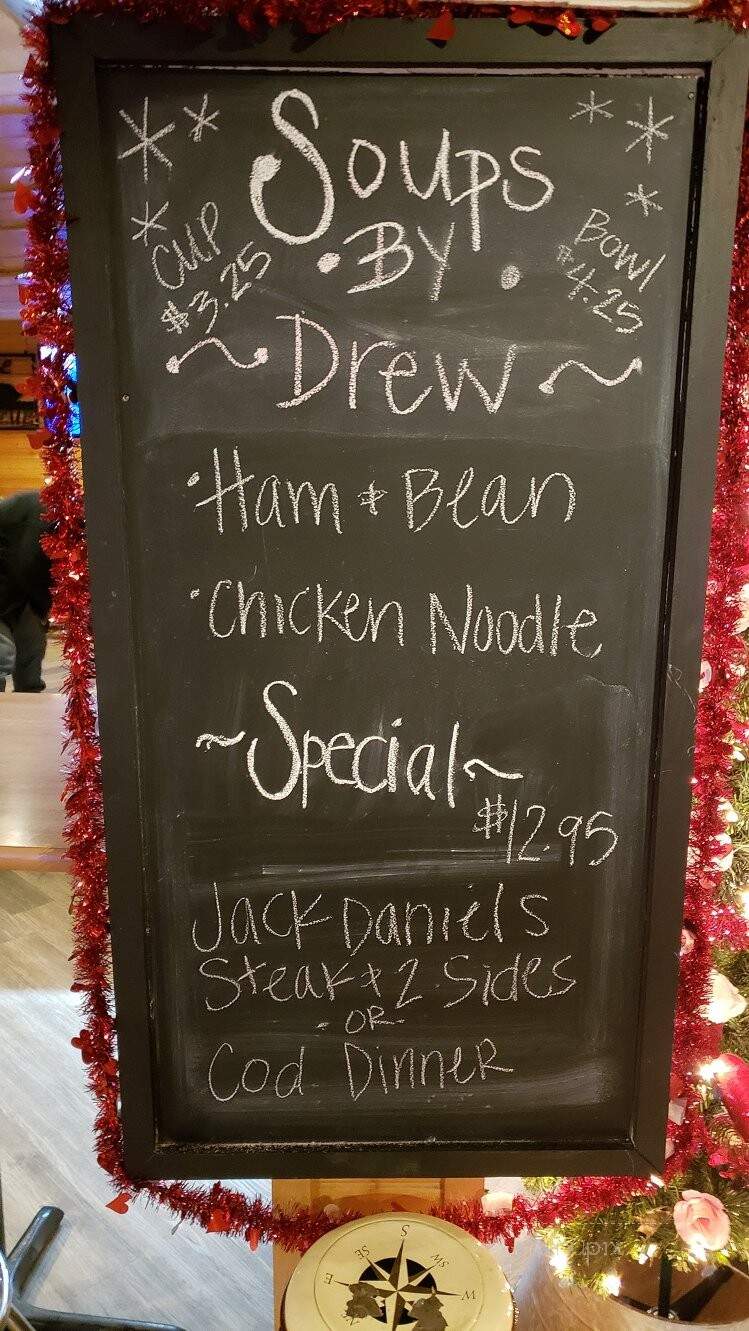 Soups
Cup
$3.25
• By •
Bowl
$4.25
~ Drew ~
• Ham & Bean
• Chicken Noodle
~ Special ~
$12.95
Jack Daniels
Steak + 2 Sides
- OR -
Cod Dinner
S
SE
SW
E
W